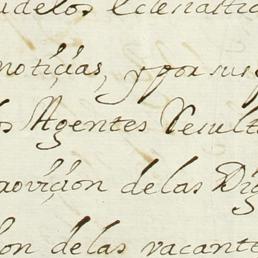 delos Eclesiastic
noticias, y por sus
os Agentes Result
provicion de las Dig
on de las vacante